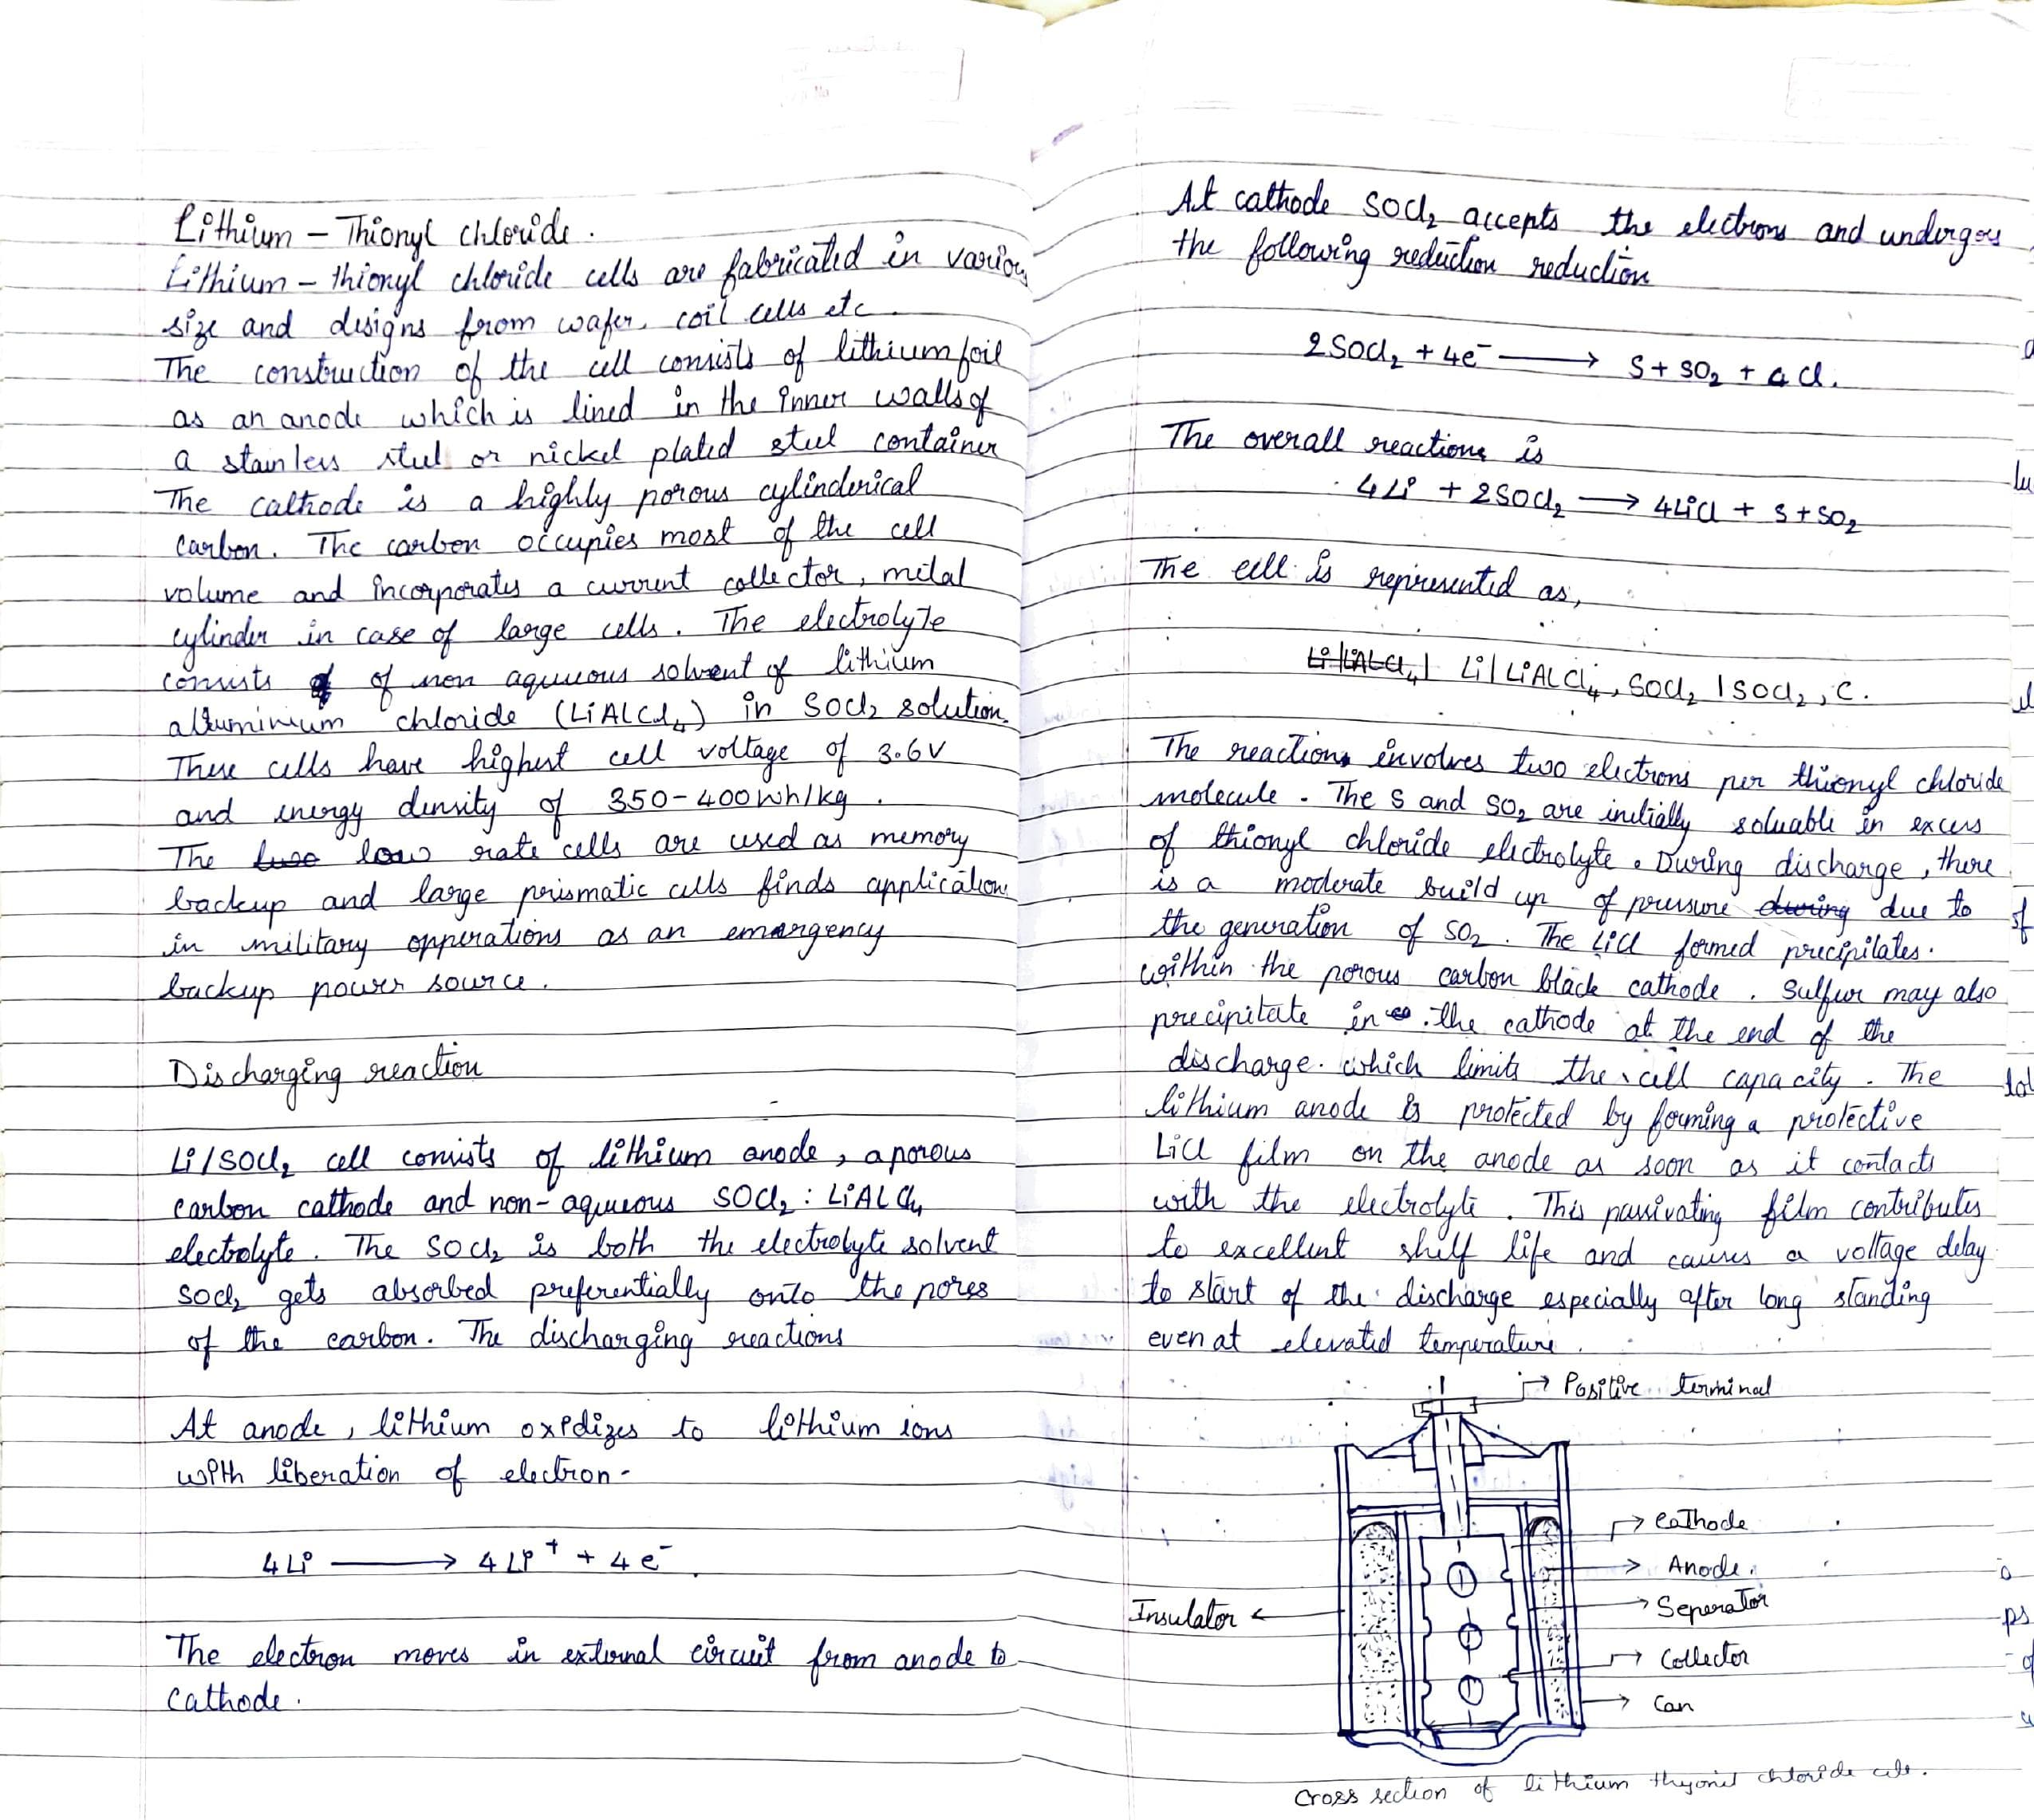 Lithium - Thionyl chloride.
Lithium - thionyl chloride cells are fabricated in various
size and designs from wafer, coil cells etc.
The construction of the cell consists of lithium foil
as an anode which is lined in the inner walls of
a stainless steel or nickel plated steel container
The cathode is a highly porous cylinderical
carbon. The carbon occupies most of the cell
volume and incorporates a current collector, metal
cylinder in case of large cells. The electrolyte
consists of non aqueous solvent of lithium
alluminium chloride (LiAlCl₄) in SOCl₂ solution.
These cells have highest cell voltage of 3.6V
and energy density of 350-400Wh/kg.
The low rate cells are used as memory
backup and large prismatic cells finds applications
in military opperations as an emargency
backup power source.
Discharging reaction
Li/SOCl₂ cell consists of lithium anode, a porous
carbon cathode and non-aqueous SOCl₂ : LiAlCl₄
electrolyte. The SOCl₂ is both the electrolyte solvent
SOCl₂ gets absorbed preferentially onto the pores
of the carbon. The discharging reactions
At anode, lithium oxidizes to lithium ions
with liberation of electron-
4Li ⟶ 4Li⁺ + 4e⁻.
The electron moves in external circuit from anode to
cathode.
At cathode SOCl₂ accepts the electrons and undergoes
the following reduction reduction
2SOCl₂ + 4e⁻ ⟶ S + SO₂ + 4Cl.
The overall reactions is
4Li + 2SOCl₂ ⟶ 4LiCl + S + SO₂
The cell is represented as,
Li|LiAlCl₄| Li|LiAlCl₄, SOCl₂ |SOCl₂, C.
The reactions involves two electrons per thionyl chloride
molecule. The S and SO₂ are initially soluable in excess
of thionyl chloride electrolyte. During discharge, there
is a moderate build up of pressure during due to
the generation of SO₂. The LiCl formed precipitates.
within the porous carbon black cathode. Sulfur may also
precipitate in the cathode at the end of the
discharge. which limits the cell capacity. The
lithium anode is protected by forming a protective
LiCl film on the anode as soon as it contacts
with the electrolyte. This passivating film contributes
to excellent shelf life and causes a voltage delay
to start of the discharge especially after long standing
even at elevated temperature.
Positive terminal
Cathode
Anode.
Seperator
Insulator
Collector
Can
Cross section of lithium thyonil chloride cell.